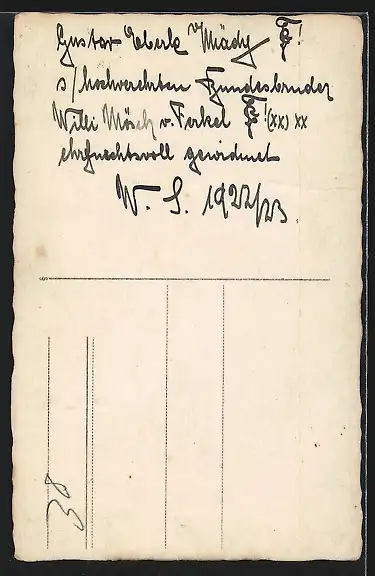 Gustav Eberle v/ Mädy !
s/ hochverehrten Bundesbruder
Willi Mösch v. Ferkel !(xx) xx
ehrfurchtsvoll gewidmet
W. S. 1922/23
38